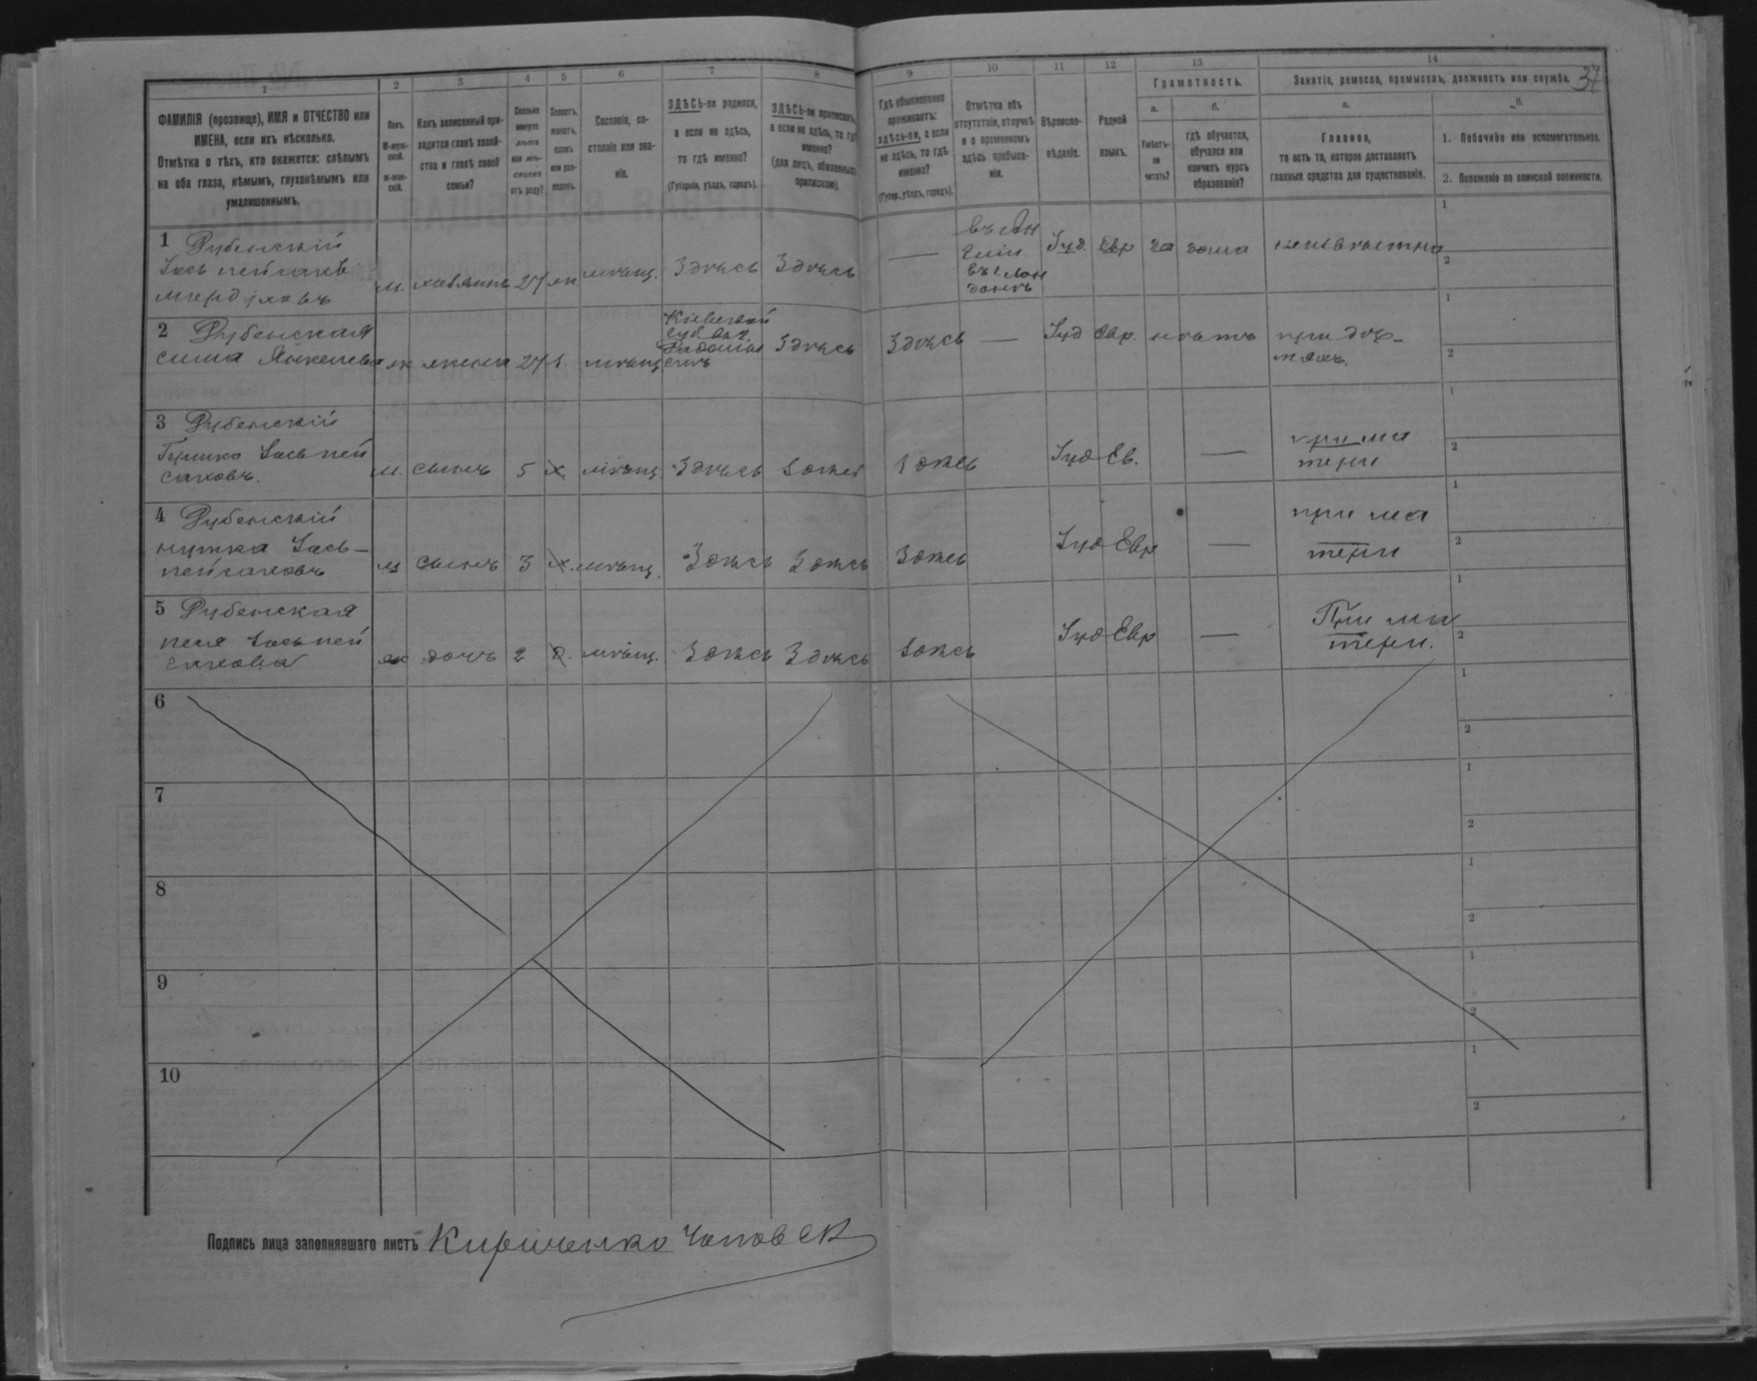 37
1 2 3 4 5 6 7 8 9 10 11 12 13 14
ФАМИЛІЯ (прозвище), ИМЯ и ОТЧЕСТВО или
ИМЕНА, если ихъ нѣсколько.
Отмѣтка о тѣхъ, кто окажется: слѣпымъ
на оба глаза, нѣмымъ, глухонѣмымъ или
умалишеннымъ.
Полъ.
М-муж-
ской.
Ж-жен-
скій.
Какъ записанный при-
ходится главѣ хозяй-
ства и главѣ своей
семьи?
Сколько
минуло
лѣтъ
или мѣ-
сяцевъ
отъ роду?
Холостъ,
женатъ,
вдовъ
или раз-
веденъ.
Сословіе, со-
стояніе или зва-
ніе.
ЗДѢСЬ-ли родился,
а если не здѣсь,
то гдѣ именно?
(Губернія, уѣздъ, городъ).
ЗДѢСЬ-ли приписанъ,
а если не здѣсь, то гдѣ
именно?
(для лицъ, обязанныхъ
припискою).
Гдѣ обыкновенно
проживаетъ:
здѣсь-ли, а если
не здѣсь, то гдѣ
именно?
(Губер., уѣздъ, городъ).
Отмѣтка объ
отсутствіи, отлучкѣ
и о временномъ
здѣсь пребыва-
ніи.
Вѣроиспо-
вѣданіе.
Родной
языкъ.
Грамотность.
а.
Умѣетъ-
ли
читать?
б.
гдѣ обучается,
обучался или
кончилъ курсъ
образованія?
Занятіе, ремесло, промыселъ, должность или служба.
а.
Главное,
то есть то, которое доставляетъ
главныя средства для существованія.
б.
1. Побочное или вспомогательное.
2. Положеніе по воинской повинности.
1 Рубенскій
м. хозяинъ 27 жн мѣщ. Здѣсь Здѣсь — Іуд. Евр да дома неизвѣстно
2 Рубенская
Сима Янкелева ж жена 27 з. мѣщ Здѣсь Здѣсь — Іуд Евр. нѣтъ при дѣ-
тяхъ.
Кіевской
3 Рубенскій
Гершко Іось пей
саховъ. м. сынъ 5 х. мѣщ. Здѣсь Здѣсь Здѣсь Іуд Ев. — при ма
тери
4 Рубенскій
Іось-
пейсаховъ м сынъ 3 х. мѣщ. Здѣсь Здѣсь Здѣсь Іуд Евр — при ма
тери
5 Рубенская
Іось пей
сахова ж дочь 2 мѣщ. Здѣсь Здѣсь Здѣсь Іуд Евр — При ма
тери.
6
7
8
9
10
Подпись лица заполнявшаго листъ